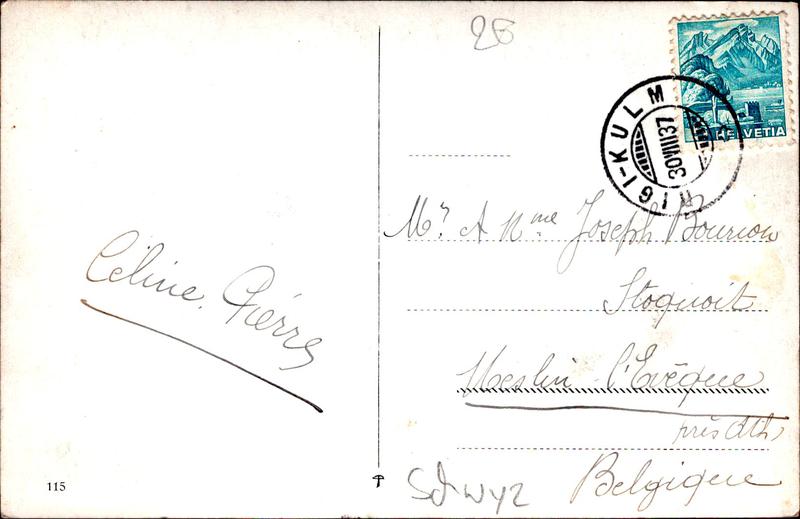 26
HELVETIA
RIGI-KULM
30 VIII 37
Mr A Mme Joseph Bourion
Stoquoit
Meslin-l'Evêque
près Ath
Belgique
Céline. Pierre
115
Schwyz